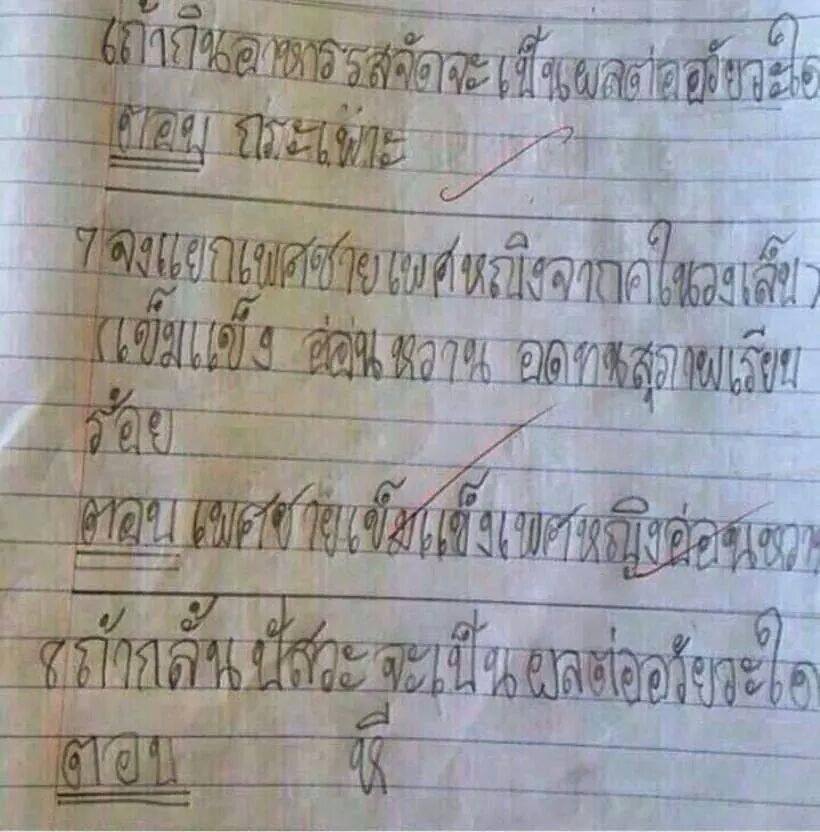 6ถ้ากินอาหารรสจัดจะเป็นผลต่ออวัยวะใด
ตอบ กระเพาะ
7 จงแยกเพศชายเพศหญิงจากคำในวงเล็บ
(เข็มแข็ง อ่อนหวาน อดทนสุภาพเรียบ
ร้อย
ตอบ เพศชายเข็มแข็งเพศหญิงอ่อนหวา
8ถ้ากลั้นปัสวะจะเป็นผลต่ออวัยวะใด
ตอบ หี